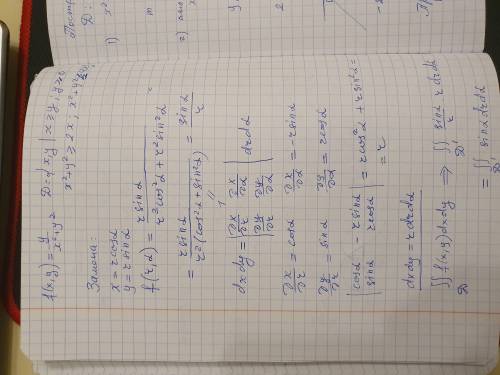 f(x,y) = y/(x²+y²) D = {x,y | x ≥ y, y ≥ 0
x²+y² ≥ 2x; x²+y²
Замена:
x = r cosα
y = r sinα
f(r,α) = r sinα/(r²cos²α + r²sin²α) =
= r sinα/(r²(cos²α + sin²α)) = sinα/r
"
1
dxdy = |∂x/∂r ∂x/∂α; ∂y/∂r ∂y/∂α| drdα
∂x/∂r = cosα ∂x/∂α = -r sinα
∂y/∂r = sinα ∂y/∂α = r cosα
|cosα -r sinα; sinα r cosα| = r cos²α + r sin²α =
= r
dxdy = r drdα
∬_D f(x,y) dxdy ⟹ ∬_D' sinα/r r drdα
= ∬_D' sinα drdα
D:
x²
1)
2)
y
2